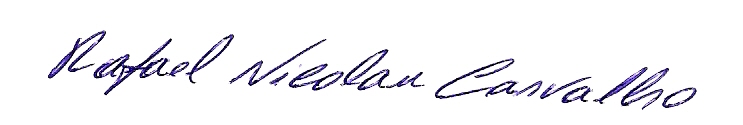 Rafael Nicolau Carvalho